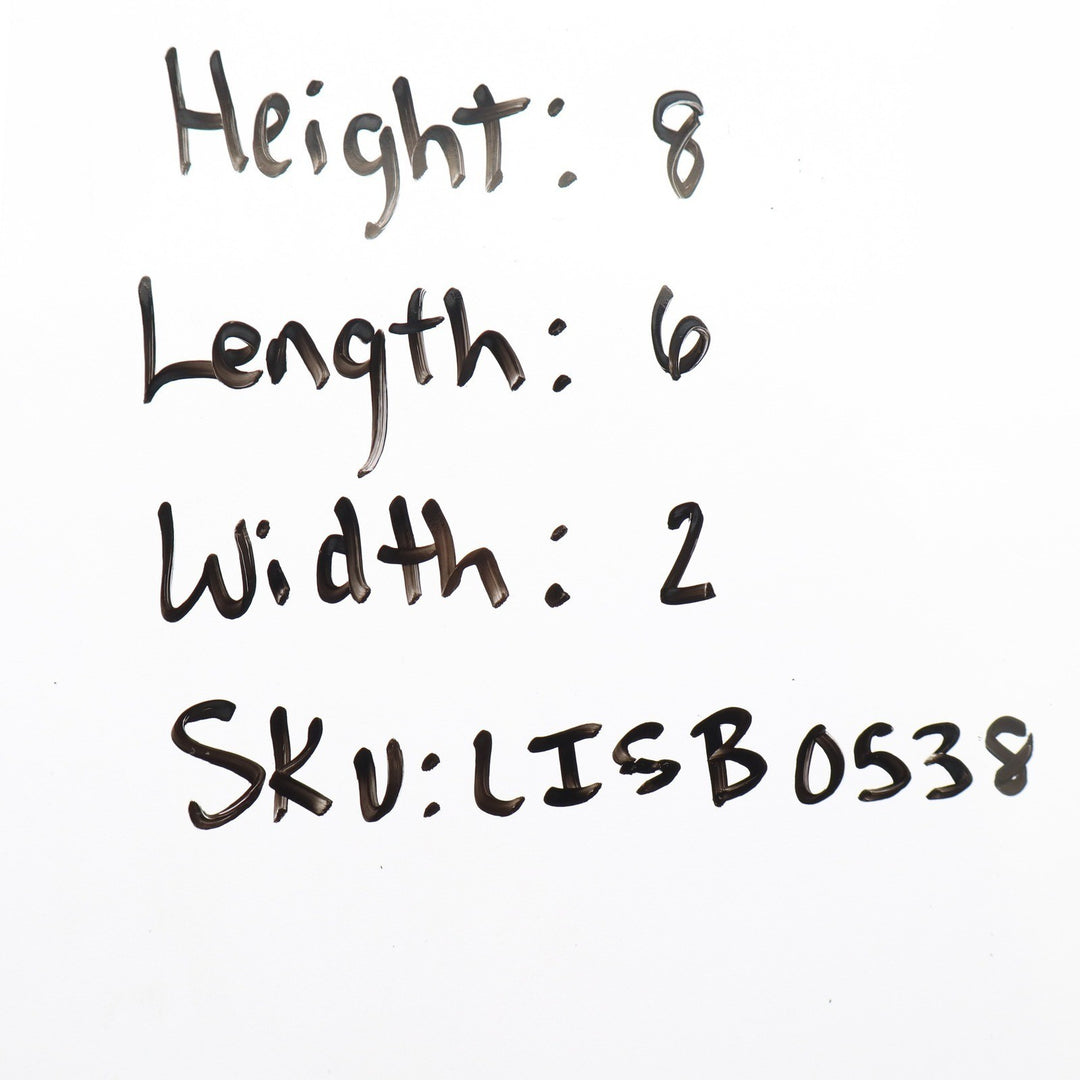 Height: 8
Length: 6
Width: 2
SKU: LISB0538